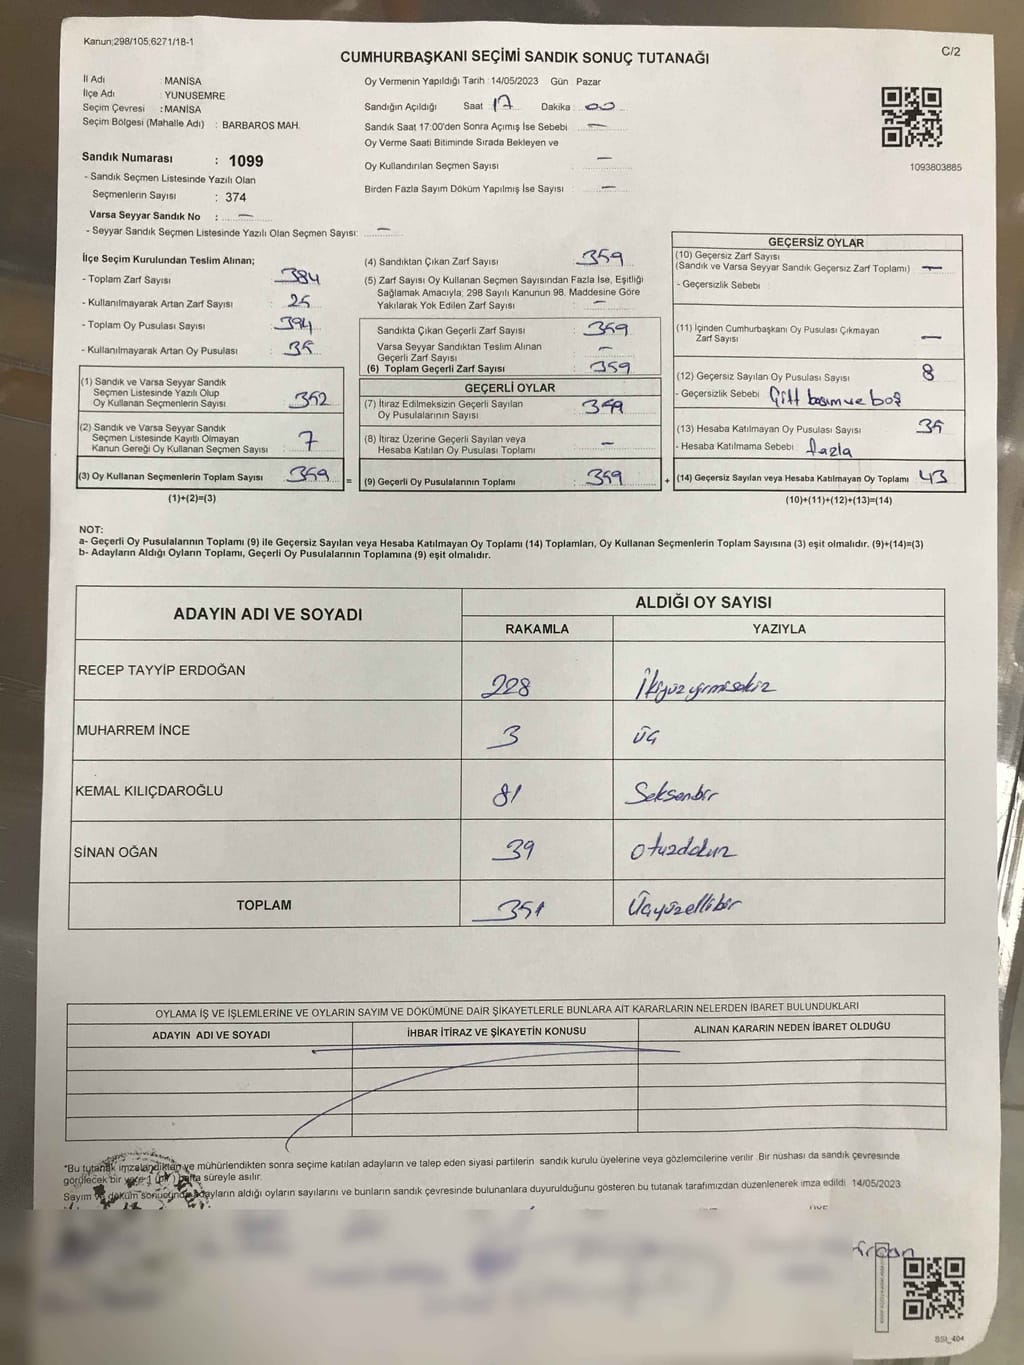 Kanun;298/105;6271/18-1
C/2
CUMHURBAŞKANI SEÇİMİ SANDIK SONUÇ TUTANAĞI
İl Adı : MANİSA
İlçe Adı : YUNUSEMRE
Seçim Çevresi : MANİSA
Seçim Bölgesi (Mahalle Adı) : BARBAROS MAH.
Sandık Numarası : 1099
- Sandık Seçmen Listesinde Yazılı Olan
Seçmenlerin Sayısı : 374
Varsa Seyyar Sandık No : —
- Seyyar Sandık Seçmen Listesinde Yazılı Olan Seçmen Sayısı: —
Oy Vermenin Yapıldığı Tarih :14/05/2023 Gün : Pazar
Sandığın Açıldığı Saat : 17 Dakika : 00
Sandık Saat 17:00'den Sonra Açımış İse Sebebi : —
Oy Verme Saati Bitiminde Sırada Bekleyen ve
Oy Kullandırılan Seçmen Sayısı : —
Birden Fazla Sayım Döküm Yapılmış İse Sayısı : —
1093803885
İlçe Seçim Kurulundan Teslim Alınan;
- Toplam Zarf Sayısı : 384
- Kullanılmayarak Artan Zarf Sayısı : 25
- Toplam Oy Pusulası Sayısı : 394
- Kullanılmayarak Artan Oy Pusulası : 35
(1) Sandık ve Varsa Seyyar Sandık
Seçmen Listesinde Yazılı Olup
Oy Kullanan Seçmenlerin Sayısı : 352
(2) Sandık ve Varsa Seyyar Sandık
Seçmen Listesinde Kayıtlı Olmayan
Kanun Gereği Oy Kullanan Seçmen Sayısı : 7
(3) Oy Kullanan Seçmenlerin Toplam Sayısı : 359
(1)+(2)=(3)
=
(4) Sandıktan Çıkan Zarf Sayısı : 359
(5) Zarf Sayısı Oy Kullanan Seçmen Sayısından Fazla İse, Eşitliği
Sağlamak Amacıyla; 298 Sayılı Kanunun 98. Maddesine Göre
Yakılarak Yok Edilen Zarf Sayısı : —
Sandıkta Çıkan Geçerli Zarf Sayısı : 359
Varsa Seyyar Sandıktan Teslim Alınan
Geçerli Zarf Sayısı : —
(6) Toplam Geçerli Zarf Sayısı : 359
GEÇERLİ OYLAR
(7) İtiraz Edilmeksizin Geçerli Sayılan
Oy Pusulalarının Sayısı : 359
(8) İtiraz Üzerine Geçerli Sayılan veya
Hesaba Katılan Oy Pusulası Toplamı : —
(9) Geçerli Oy Pusulalarının Toplamı : 359
+
GEÇERSİZ OYLAR
(10) Geçersiz Zarf Sayısı
(Sandık ve Varsa Seyyar Sandık Geçersiz Zarf Toplamı) : —
- Geçersizlik Sebebi
(11) İçinden Cumhurbaşkanı Oy Pusulası Çıkmayan
Zarf Sayısı : —
(12) Geçersiz Sayılan Oy Pusulası Sayısı : 8
- Geçersizlik Sebebi Çift basım ve boş
(13) Hesaba Katılmayan Oy Pusulası Sayısı : 35
- Hesaba Katılmama Sebebi fazla
(14) Geçersiz Sayılan veya Hesaba Katılmayan Oy Toplamı : 43
(10)+(11)+(12)+(13)=(14)
NOT:
a- Geçerli Oy Pusulalarının Toplamı (9) ile Geçersiz Sayılan veya Hesaba Katılmayan Oy Toplamı (14) Toplamları, Oy Kullanan Seçmenlerin Toplam Sayısına (3) eşit olmalıdır. (9)+(14)=(3)
b- Adayların Aldığı Oyların Toplamı, Geçerli Oy Pusulalarının Toplamına (9) eşit olmalıdır.
ADAYIN ADI VE SOYADI
ALDIĞI OY SAYISI
RAKAMLA YAZIYLA
RECEP TAYYİP ERDOĞAN 228 İkiyüzyirmisekiz
MUHARREM İNCE 3 üç
KEMAL KILIÇDAROĞLU 81 Seksenbir
SİNAN OĞAN 39 otuzdokuz
TOPLAM 351 Üçyüzellibir
OYLAMA İŞ VE İŞLEMLERİNE VE OYLARIN SAYIM VE DÖKÜMÜNE DAİR ŞİKAYETLERLE BUNLARA AİT KARARLARIN NELERDEN İBARET BULUNDUKLARI
ADAYIN ADI VE SOYADI İHBAR İTİRAZ VE ŞİKAYETİN KONUSU ALINAN KARARIN NEDEN İBARET OLDUĞU
"Bu tutanak imzalandıktan ve mühürlendikten sonra seçime katılan adayların ve talep eden siyasi partilerin sandık kurulu üyelerine veya gözlemcilerine verilir. Bir nüshası da sandık çevresinde
görülecek bir yere 1 (bir) hafta süreyle asılır.
Sayım ve döküm sonucunda adayların aldığı oyların sayılarını ve bunların sandık çevresinde bulunanlara duyurulduğunu gösteren bu tutanak tarafımızdan düzenlenerek imza edildi. 14/05/2023
BSI_404